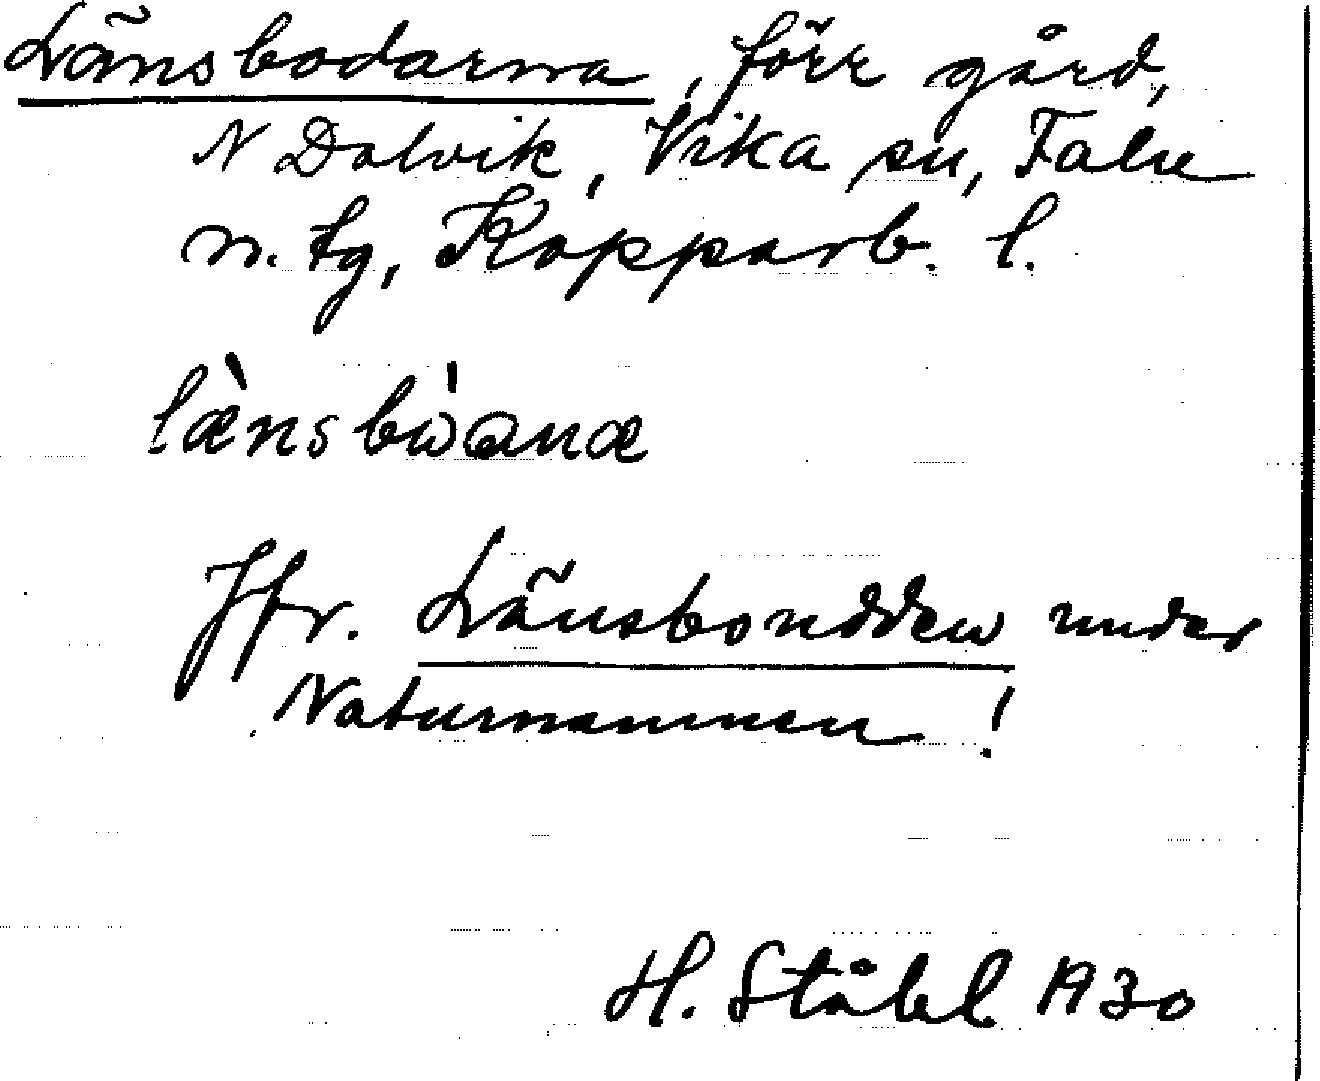 Länsbodarna, förr gård,
N Dalvik, Vika sn, Falu
n. tg, Kopparb. l.
læ̀nsbὼana
Jfr. Länsbondden under
Naturnamnen!
H. Ståhl 1930